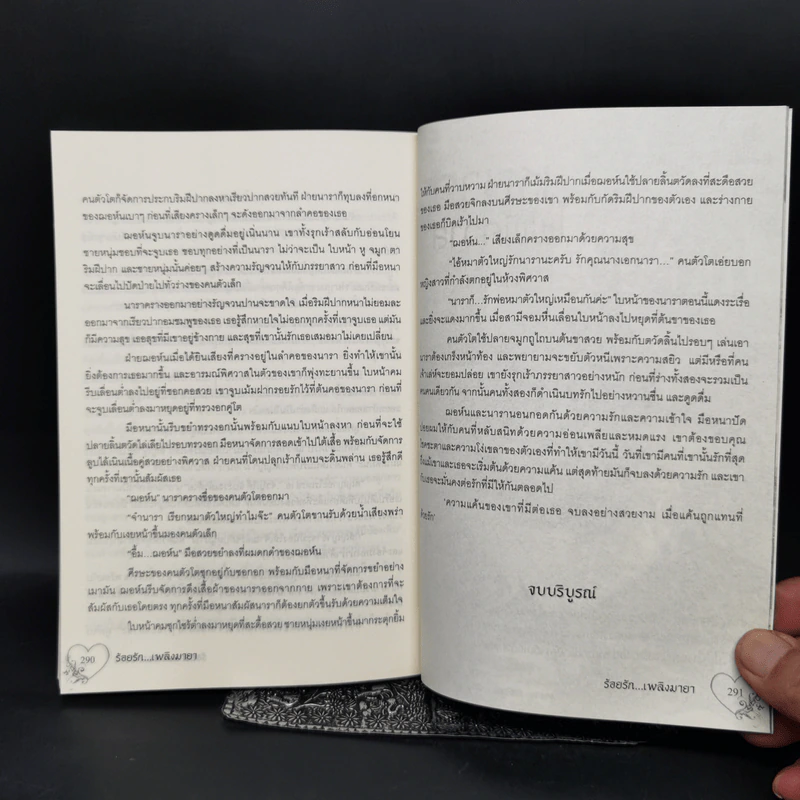 คนตัวโตก็จัดการประกบริมฝีปากลงหาเรียวปากสวยทันที ฝ่ายนาราก็ทุบลงที่อกหนา
ของฌอห์นเบาๆ ก่อนที่เสียงครางเล็กๆ จะดังออกมาจากลำคอของเธอ
ฌอห์นจูบนาราอย่างดูดดื่มอยู่เนิ่นนาน เขาทั้งรุกเร้าสลับกับอ่อนโยน
ชายหนุ่มชอบที่จะจูบเธอ ชอบทุกอย่างที่เป็นนารา ไม่ว่าจะเป็น ใบหน้า หู จมูก ตา
ริมฝีปาก และชายหนุ่มนั้นค่อยๆ สร้างความรัญจวนให้กับภรรยาสาว ก่อนที่มือหนา
จะเลื่อนไปปัดป่ายไปทั่วร่างของคนตัวเล็ก
นาราครางออกมาอย่างรัญจวนปานจะขาดใจ เมื่อริมฝีปากหนาไม่ยอมละ
ออกมาจากเรียวปากอมชมพูของเธอ เธอรู้สึกหายใจไม่ออกทุกครั้งที่เขาจูบเธอ แต่มัน
ก็มีความสุข เธอสุขที่มีเขาอยู่ข้างกาย และสุขที่เขานั้นรักเธอเสมอมาไม่เคยเปลี่ยน
ฝ่ายฌอห์นเมื่อได้ยินเสียงที่ครางอยู่ในลำคอของนารา ยิ่งทำให้เขานั้น
ยิ่งต้องการเธอมากขึ้น และอารมณ์พิศวาสในตัวของเขาก็พุ่งทะยานขึ้น ใบหน้าคม
รีบเลื่อนต่ำลงไปอยู่ที่ซอกคอสวย เขาจูบเม้มฝากรอยรักไว้ที่ต้นคอของนารา ก่อนที่
จะจูบเลื่อนต่ำลงมาหยุดอยู่ที่ทรวงอกคู่โต
มือหนานั้นรีบขยำทรวงอกนั้นพร้อมกับแนบใบหน้าลงหา ก่อนที่จะใช้
ปลายลิ้นตวัดไล่เลียไปรอบทรวงอก มือหนาจัดการสอดเข้าไปใต้เสื้อ พร้อมกับจัดการ
ลูบไล้เนินเนื้อคู่สวยอย่างพิศวาส ฝ่ายคนที่โดนปลุกเร้าก็แทบจะดิ้นพล่าน เธอรู้สึกดี
ทุกครั้งที่เขานั้นสัมผัสเธอ
“ฌอห์น” นาราครางชื่อของคนตัวโตออกมา
“จ๋านารา เรียกหมาตัวใหญ่ทำไมจ๊ะ” คนตัวโตขานรับด้วยน้ำเสียงพร่า
พร้อมกับเงยหน้าขึ้นมองคนตัวเล็ก
“อื้ม...ฌอห์น” มือสวยขยำลงที่ผมดกดำของฌอห์น
ศีรษะของคนตัวโตซุกอยู่กับซอกอก พร้อมกับมือหนาที่จัดการขยำอย่าง
เมามัน ฌอห์นรีบจัดการดึงเสื้อผ้าของนาราออกจากกาย เพราะเขาต้องการที่จะ
สัมผัสกับเธอโดยตรง ทุกครั้งที่มือหนาสัมผัสนาราก็ต้องยกตัวขึ้นรับด้วยความเต็มใจ
ใบหน้าคมซุกไซร้ต่ำลงมาหยุดที่สะดือสวย ชายหนุ่มเงยหน้าขึ้นมากระตุกยิ้ม
290 ร้อยรัก...เพลิงมายา
ให้กับคนที่วาบหวาม ฝ่ายนาราก็เม้มริมฝีปากเมื่อฌอห์นใช้ปลายลิ้นตวัดลงที่สะดือสวย
ของเธอ มือสวยจิกลงบนศีรษะของเขา พร้อมกับกัดริมฝีปากของตัวเอง และร่างกาย
ของเธอก็บิดเร้าไปมา
“ฌอห์น...” เสียงเล็กครางออกมาด้วยความสุข
“ไอ้หมาตัวใหญ่รักนารานะครับ รักคุณนางเอกนารา...” คนตัวโตเอ่ยบอก
หญิงสาวที่กำลังตกอยู่ในห้วงพิศวาส
“นาราก็...รักพ่อหมาตัวใหญ่เหมือนกันค่ะ” ใบหน้าของนาราตอนนี้แดงระเรื่อ
และยิ่งจะแดงมากขึ้น เมื่อสามีจอมหื่นเลื่อนใบหน้าลงไปหยุดที่ต้นขาของเธอ
คนตัวโตใช้ปลายจมูกถูไถบนต้นขาสวย พร้อมกับตวัดลิ้นไปรอบๆ เล่นเอา
นาราต้องเกร็งหน้าท้อง และพยายามจะขยับตัวหนีเพราะความสยิว แต่มีหรือที่คน
เจ้าเล่ห์จะยอมปล่อย เขายังรุกเร้าภรรยาสาวอย่างหนัก ก่อนที่ร่างทั้งสองจะรวมเป็น
คนคนเดียวกัน จากนั้นคนทั้งสองก็ดำเนินบทรักไปอย่างหวานชื่น และดูดดื่ม
ฌอห์นและนารานอนกอดกันด้วยความรักและความเข้าใจ มือหนาปัด
ปอยผมให้กับคนที่หลับสนิทด้วยความอ่อนเพลียและหมดแรง เขาต้องขอบคุณ
โชคชะตาและความโง่เขลาของตัวเองที่ทำให้เขามีวันนี้ วันที่เขามีคนที่เขานั้นรักที่สุด
ถึงแม้เขาและเธอจะเริ่มต้นด้วยความแค้น แต่สุดท้ายมันก็จบลงด้วยความรัก และเขา
กับเธอจะมั่นคงต่อรักที่มีให้กันตลอดไป
‘ความแค้นของเขาที่มีต่อเธอ จบลงอย่างสวยงาม เมื่อแค้นถูกแทนที่
ด้วยรัก’
จบบริบูรณ์
ร้อยรัก...เพลิงมายา 291